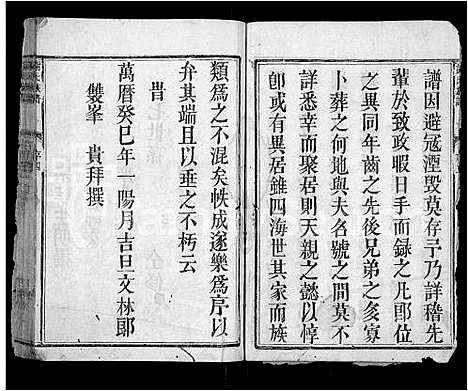 譜因避寇湮毀莫存予乃詳稽先
輩於致政暇日手而錄之凡郎位
之異同年齒之先後兄弟之多寡
卜葬之何地與夫名號之間莫不
詳悉幸而聚居則天親之懿以惇
卽或有異居雖四海世其家而族
類爲之不混矣帙成遂樂爲序以
弁其端且以垂之不朽云
旹
萬曆癸巳年一陽月吉旦文林郎
雙峯 貴拜撰